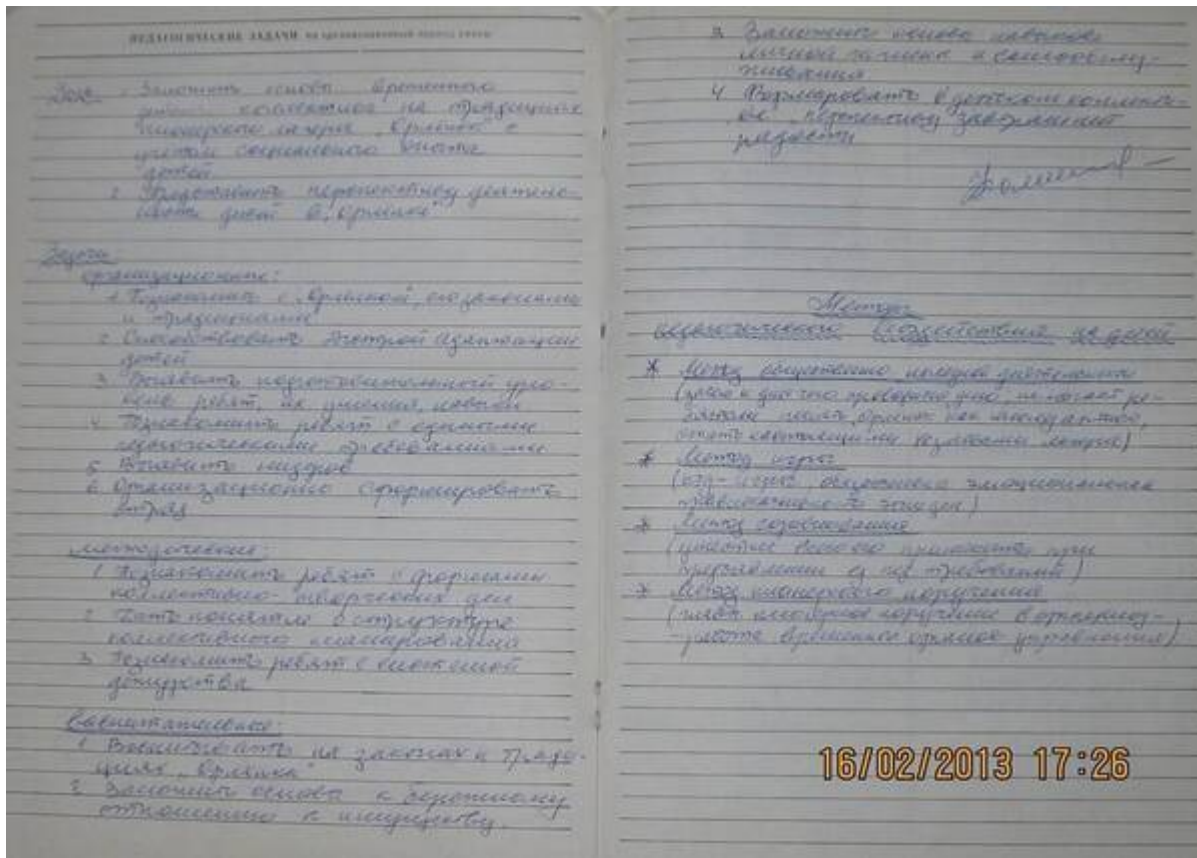 ПЕДАГОГИЧЕСКИЕ ЗАДАЧИ на организационный период смены
Заложить основы временного
коллектива на традициях
пионерского лагеря „Орлёнок" с
учетом социального опыта
детей
2. перспективу деятельно-
сти детей в „Орлёнке"
Задачи
организационные:
1. Познакомить с „Орлёнком", его законами
и традициями
2. Способствовать быстрой адаптации
детей
3. Выявить подготовительный уро-
вень ребят, их умения, навыки
4. Познакомить ребят с едиными
педагогическими требованиями
5. Выявить лидеров
6. Организационно сформировать
отряд
методические:
1. Познакомить ребят с формами
коллективно-творческих дел
2. Дать понятие о структуре
коллективного планирования
3. Познакомить ребят с системой
дежурства
Воспитательные:
1. Воспитывать на законах и тради-
циях „Орлёнка"
2. Заложить основы к бережному
отношению к имуществу.
3. Заложить основы навыков
личной гигиены и
4. Формировать в детском коллекти-
ве перспективу завтрашней
радости
Методы
педагогического воздействия на детей
* Метод общественно полезной деятельности
* Метод игры
* Метод соревнования
(участие всего
предъявлении требований)
* Метод пионерского поручения
(пионерское поручение в отряде,
временных органов управления)
16/02/2013 17:26